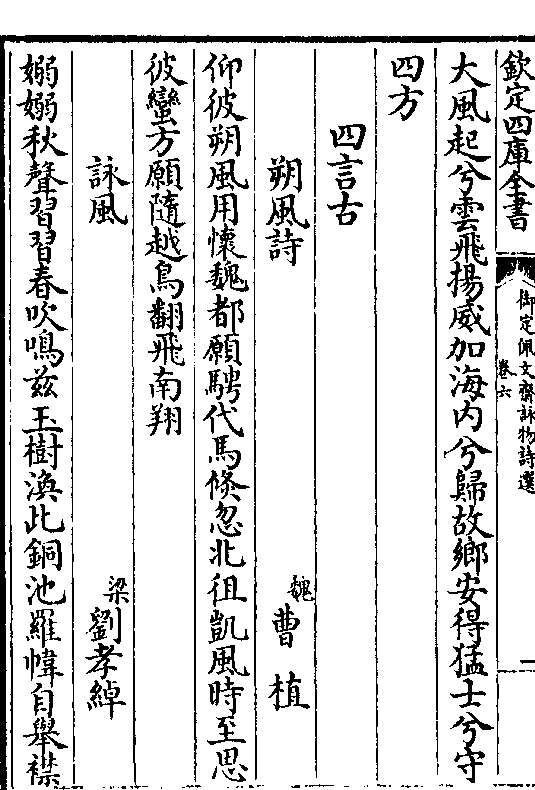 欽定四庫全書
御定佩文齋詠物詩選
卷六
一
大風起兮雲飛揚威加海内兮歸故鄉安得猛士兮守
四方
四言古
朔風詩
魏曹植
仰彼朔風用懷魏都願騁代馬倐忽北徂凱風時至思
彼蠻方願隨越鳥翻飛南翔
詠風
梁劉孝綽
嫋嫋秋聲習習春吹鳴兹玉樹渙此銅池羅幃自舉襟